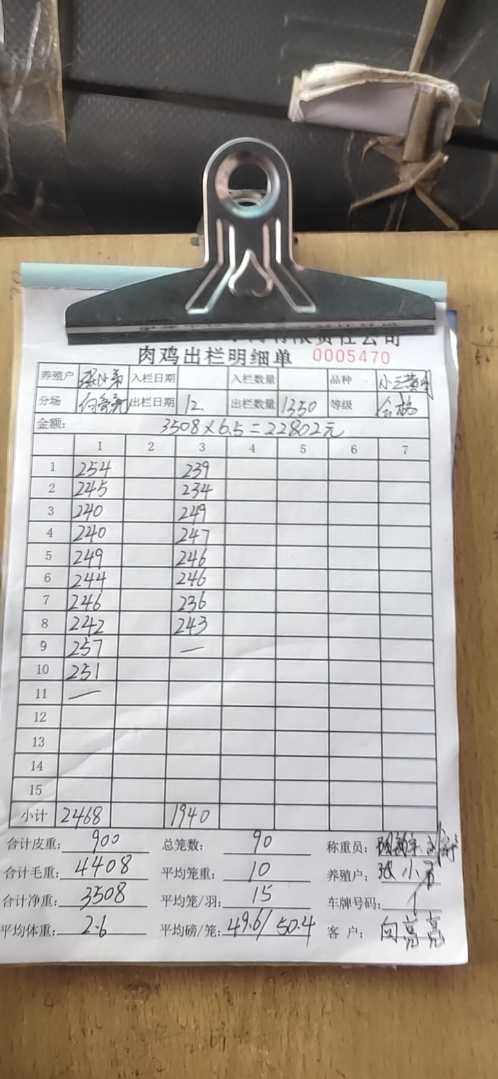 有限责任公司
肉鸡出栏明细单 0005470
养殖户 入栏日期 入栏数量 品种
分场 出栏日期 12 出栏数量 1350 等级 合格
金额: 3508×6.5=22802元
1 2 3 4 5 6 7
1 254 239
2 245 234
3 240 249
4 240 247
5 249 246
6 244 246
7 246 236
8 242 243
9 257 —
10 251
11 —
12
13
14
15
小计 2468 1940
合计皮重: 900 总笼数: 90 称重员:
合计毛重: 4408 平均笼重: 10 养殖户: 张小
合计净重: 3508 平均笼/羽: 15 车牌号码:
平均体重: 2.6 平均磅/笼: 49.6/50.4 客户: 向高亮